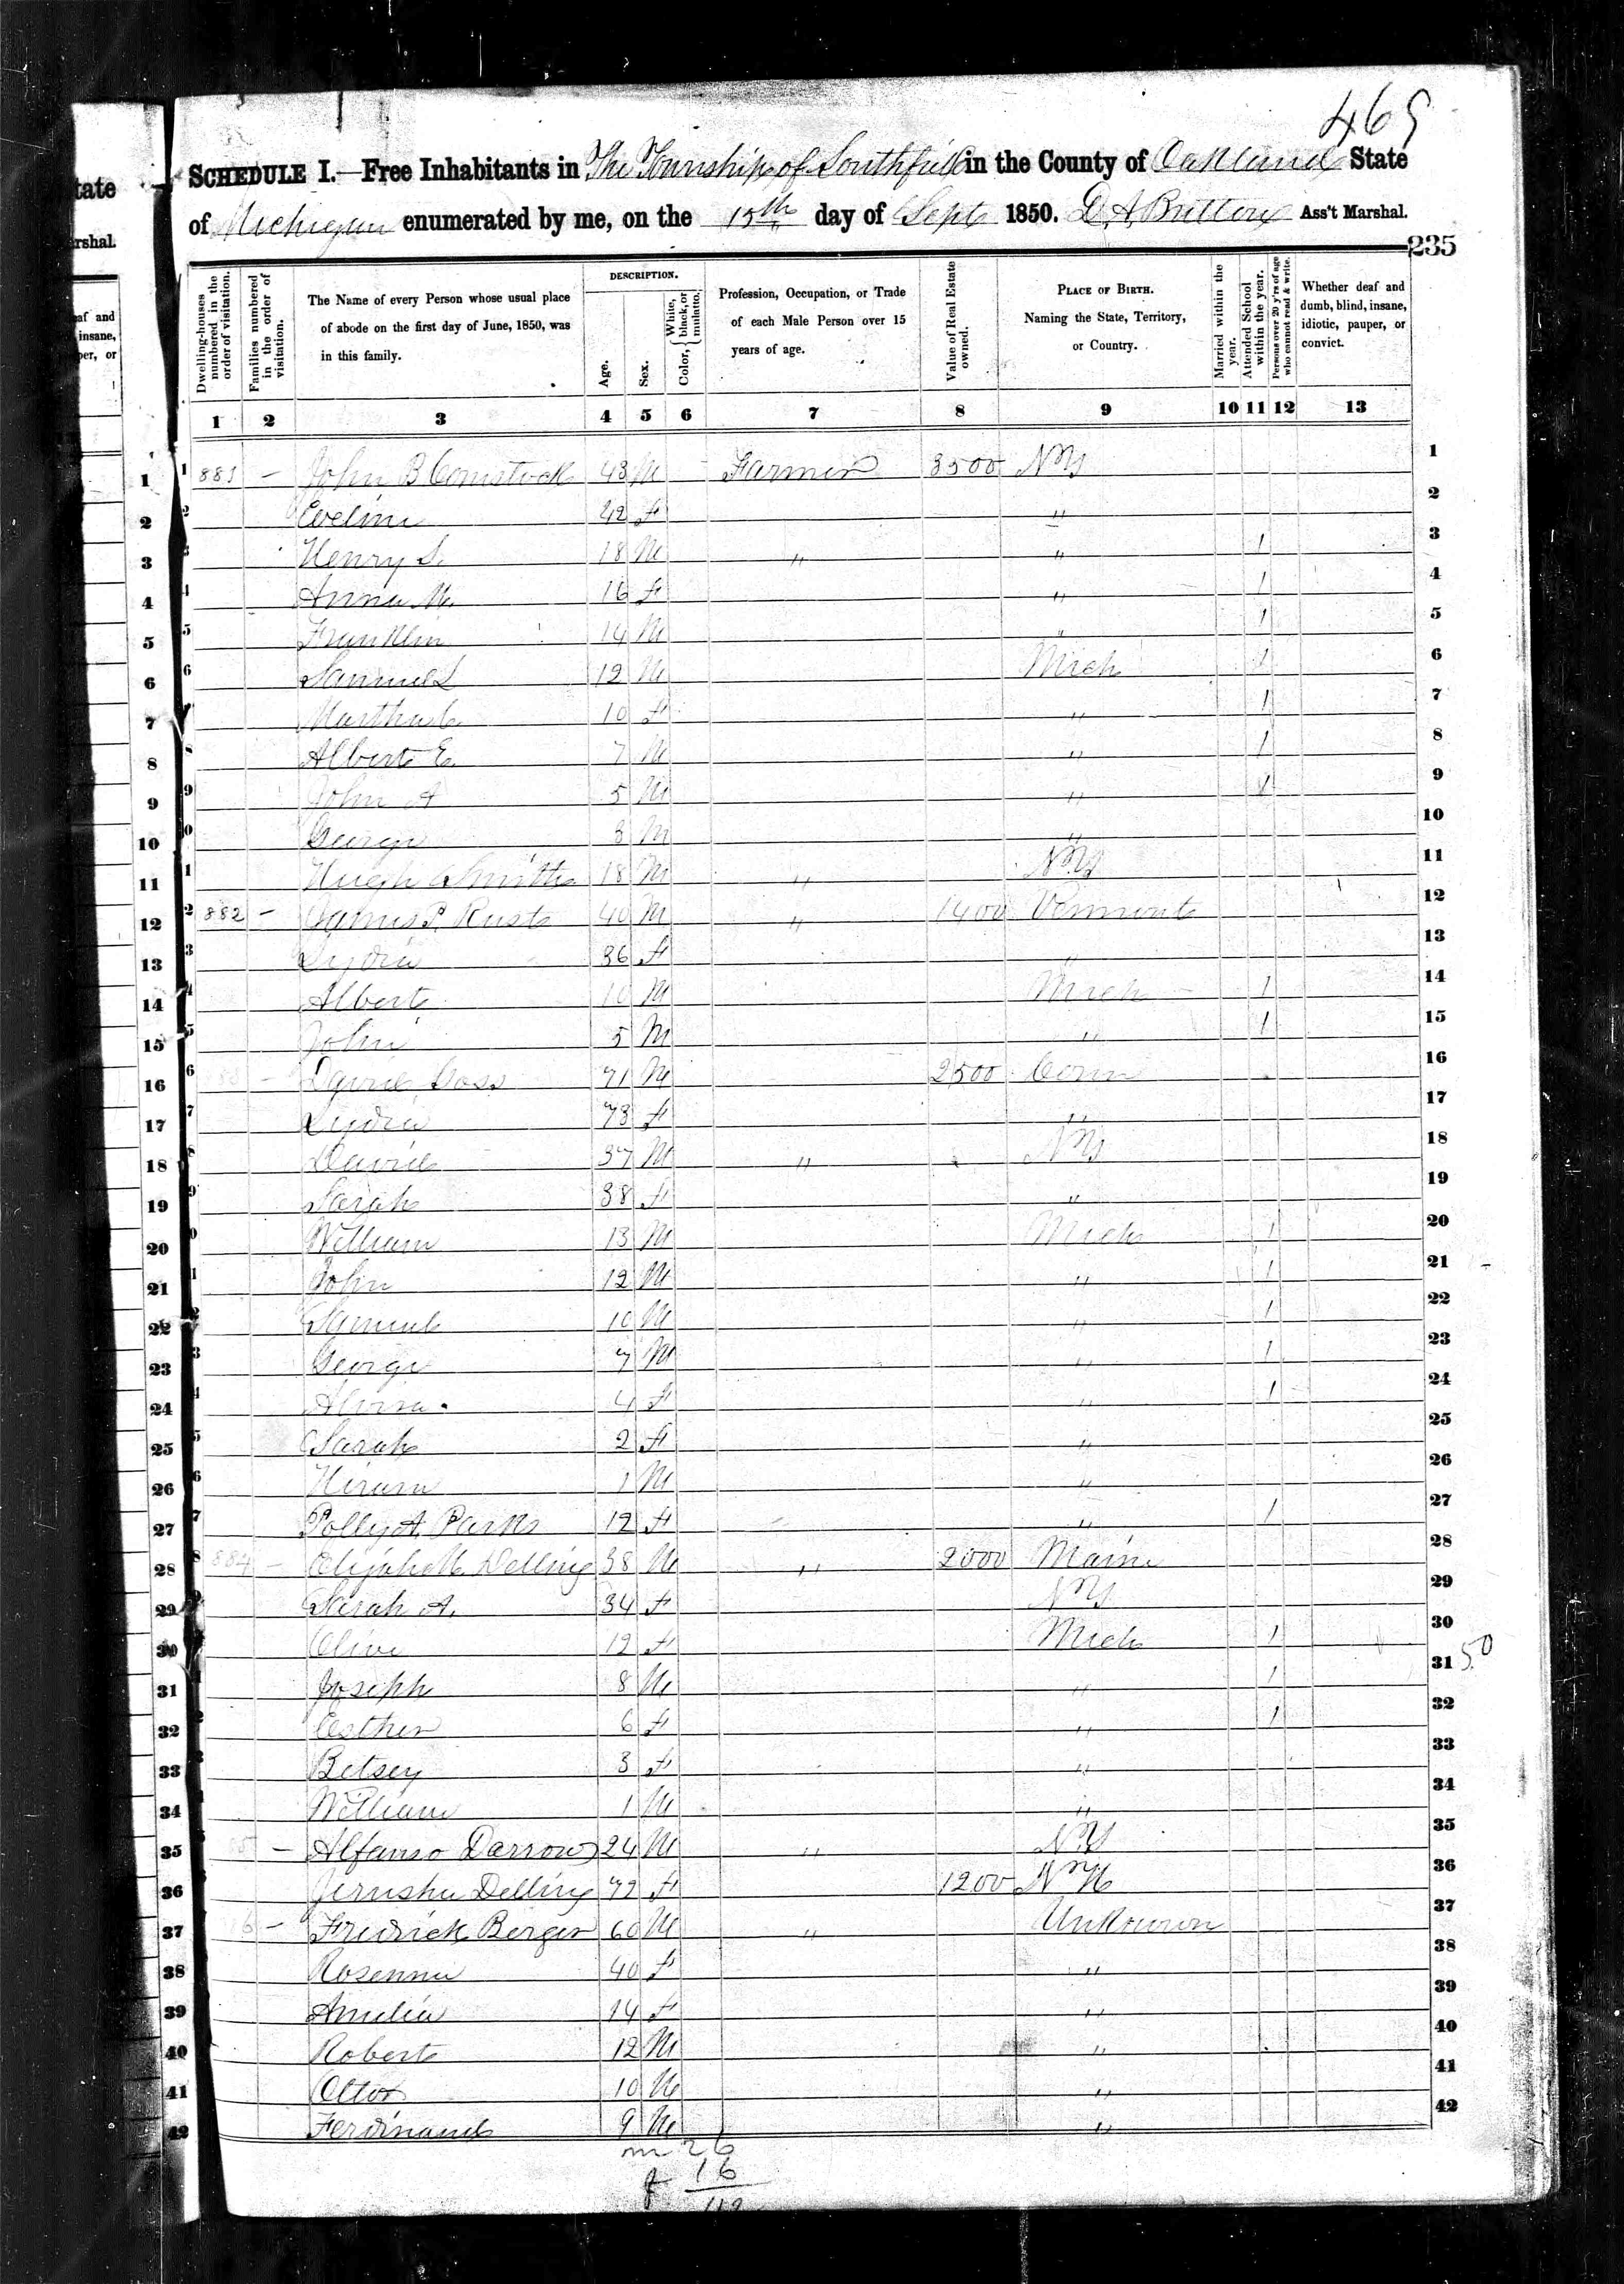 469
SCHEDULE I.—Free Inhabitants in The Township of Southfield in the County of Oakland State
of Michigan enumerated by me, on the 15th day of Sept 1850. D. A. Britton Ass't Marshal.
235
Dwelling-houses numbered in the order of visitation.
Families numbered in the order of visitation.
The Name of every Person whose usual place of abode on the first day of June, 1850, was in this family.
DESCRIPTION.
Age.
Sex.
Color, { White, black, or mulatto.
Profession, Occupation, or Trade of each Male Person over 15 years of age.
Value of Real Estate owned.
PLACE OF BIRTH. Naming the State, Territory, or Country.
Married within the year.
Attended School within the year.
Persons over 20 y'rs of age who cannot read & write.
Whether deaf and dumb, blind, insane, idiotic, pauper, or convict.
1 2 3 4 5 6 7 8 9 10 11 12 13
1 881 – John B Comstock 43 M Farmer 3500 N Y 1
2 Eveline 42 F " 2
3 Henry S. 18 M " " 1 3
4 Anna M. 16 F " 1 4
5 Franklin 14 M " 1 5
6 Samuel L 12 M Mich 1 6
7 Martha C 10 F " 1 7
8 Albert E. 7 M " 1 8
9 John A 5 M " 1 9
10 George 3 M " 10
11 Hugh Smith 18 M " N Y 11
12 882 – James P. Rust 40 M " 1400 Vermont 12
13 Lydia 36 F " 13
14 Albert 10 M Mich 1 14
15 John 5 M " 1 15
16 – David Goss 71 M 2500 Conn 16
17 Lydia 73 F " 17
18 David 37 M " N Y 18
19 Sarah 38 F " 19
20 William 13 M Mich 1 20
21 John 12 M " 1 21
22 Samuel 10 M " 1 22
23 George 7 M " 1 23
24 Alvira 4 F " 1 24
25 Sarah 2 F " 25
26 Hiram 1 M " 26
27 Polly A. Parks 12 F " 1 27
28 884 – Elijah M. Delling 38 M " 2000 Maine 28
29 Sarah A. 34 F N Y 29
30 Olive 12 F Mich 1 30
31 Joseph 8 M " 1 31 50
32 Esther 6 F " 1 32
33 Betsey 3 F " 33
34 William 1 M " 34
35 – Alfanso Darrow 24 M " N Y 35
36 Jerusha Delling 72 F 1200 N H 36
37 6 – Fredrick Berger 60 M " Unkown 37
38 Rosenna 40 F " 38
39 Amelia 14 F " 39
40 Robert 12 M " 40
41 Ottor 10 M " 41
42 Ferdinand 9 M " 42
m 26
f 16
42